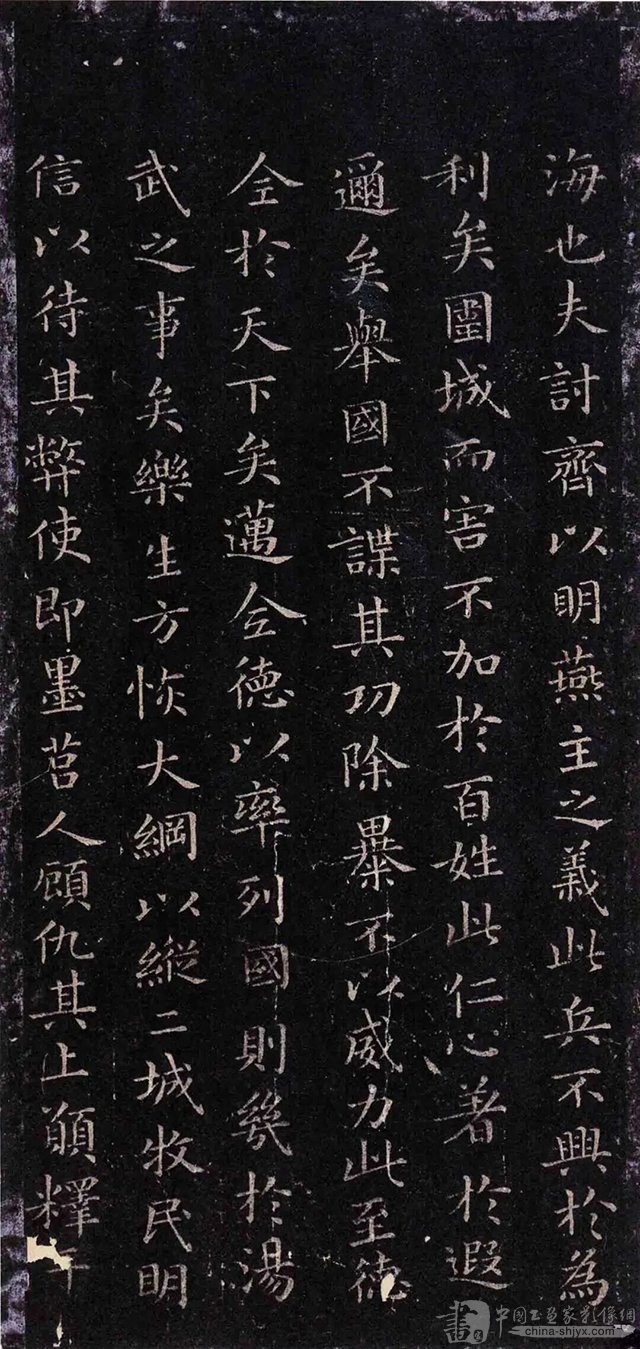 海也夫討齊以明燕主之義此兵不興於為
利矣圍城而害不加於百姓此仁心著於遐
邇矣舉國不謀其功除暴不以威力此至德
全於天下矣邁全德以率列國則幾於湯
武之事矣樂生方恢大綱以縱二城牧民明
信以待其弊使即墨莒人顧仇其上願釋干
中國书画家影像網
china-shjyx.com